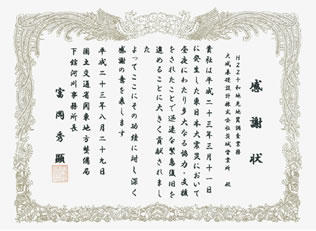 感謝状
H22十和地先地質調査業務
大成基礎設計株式会社茨城営業所 殿
貴社は平成二十三年三月十一日
に発生した東日本大震災において
昼夜にわたり多大なる協力・支援
をされたことで迅速な緊急復旧を
進めることに大きく貢献されまし
た
よってここにその功績に対し深く
感謝の意を表します
平成二十三年八月二十九日
国土交通省関東地方整備局
下館河川事務所長
富岡秀顕